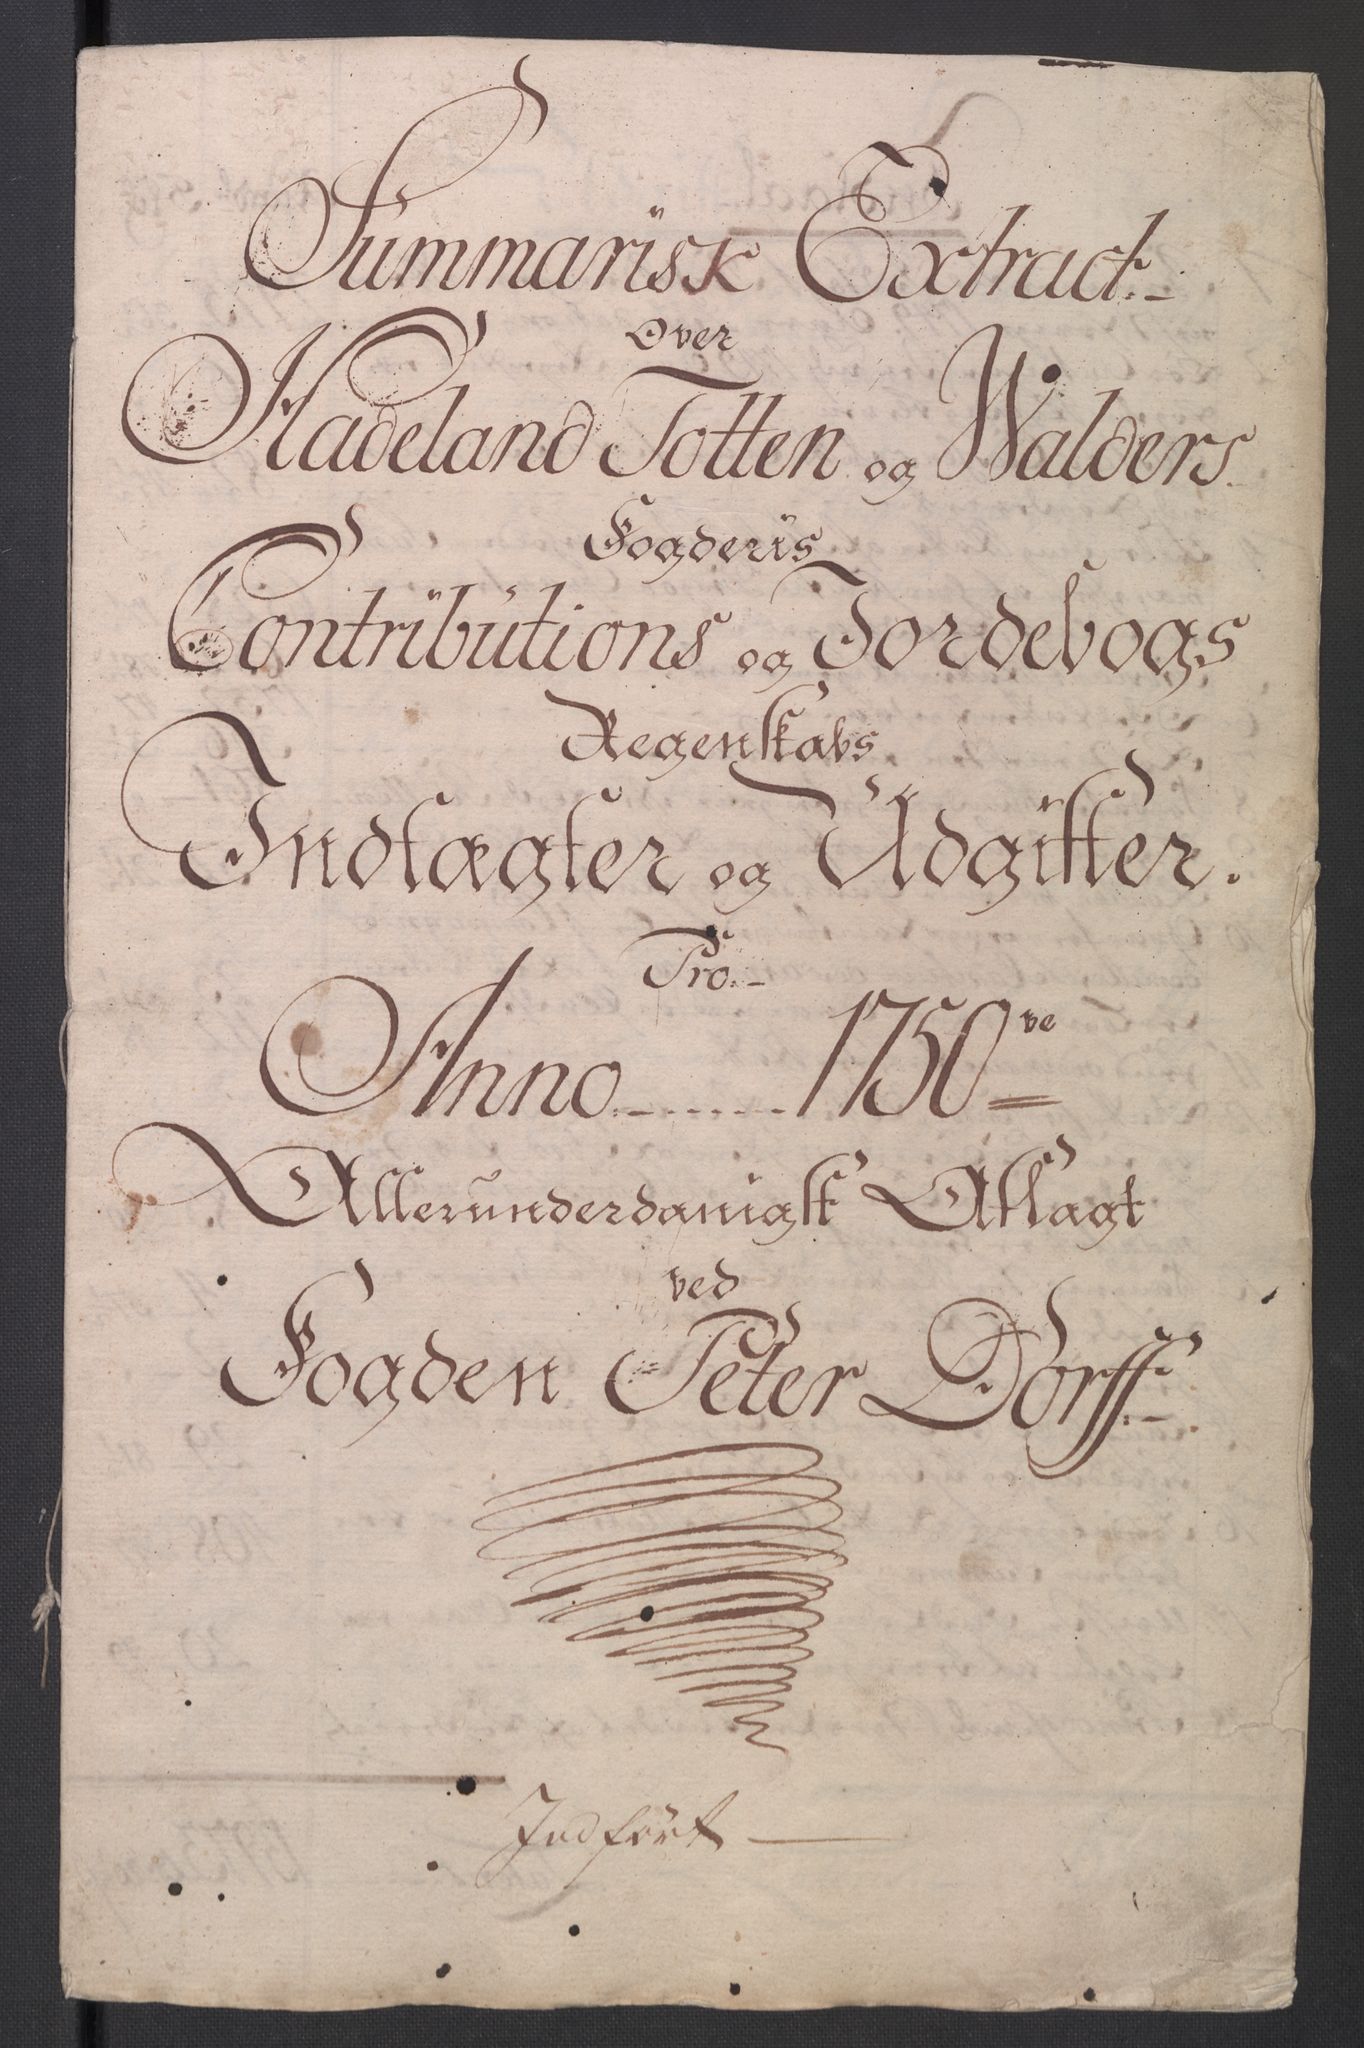 Summarisk Extract
Over
Hadeland Totten og Walders
Fogderiis
Contributions og Jordebogs
Regenskabs
Indtægter og Udgifter.
Pro
Anno 1750ve
Allerunderdanigst Aflagt
ved
Fogden Peter Dorff
Indført